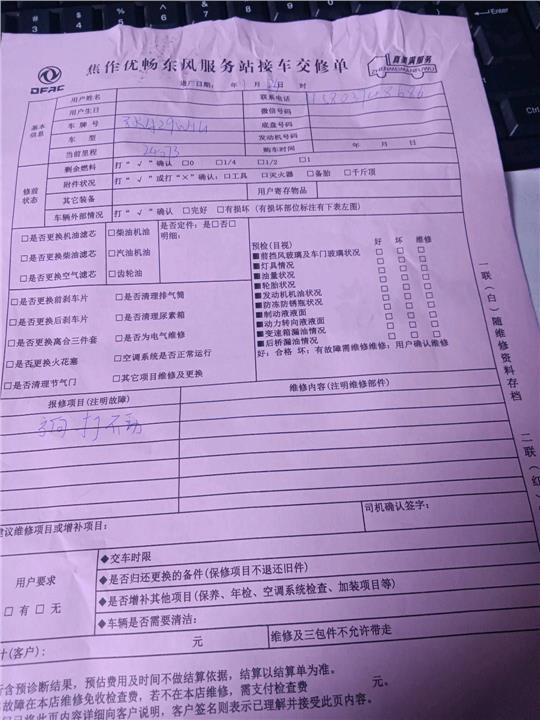 DFAC
焦作优畅东风服务站接车交修单
真美满服务
ZHENMEIMANFUWU
进厂日期: 年 月 日 时
基本信息
用户姓名
联系电话
用户生日
微信号码
车牌号
底盘号码
车 型
发动机号码
当前里程
购车时间 年 月 日
修前状态
剩余燃料 打“√”确认 □0 □1/4 □1/2 □1
附件状况 打“√”或打“×”确认:□工具 □灭火器 □备胎 □千斤顶
其它装备
用户寄存物品
车辆外部情况 打“√”确认 □完好 □有损坏 (有损坏部位标注有下表左图)
□是否更换机油滤芯
□柴油机油
是否定件: 是□否□
明细:
□是否更换柴油滤芯
□汽油机油
□是否更换空气滤芯
□齿轮油
预检(目视) 好 坏 维修
■前挡风玻璃及车门玻璃状况 □ □ □
■灯具情况 □ □ □
■油量状况 □ □ □
■轮胎状况 □ □ □
■发动机机油状况 □ □ □
■防冻防锈瓶状况 □ □ □
■制动液液面 □ □ □
■动力转向液液面 □ □ □
■变速箱漏油情况 □ □ □
■后桥漏油情况 □ □ □
好: 合格 坏: 有故障需维修维修: 用户确认维修
□是否更换前刹车片 □是否清理排气筒
□是否更换后刹车片 □是否清理尿素箱
□是否更换离合三件套 □是否为电气维修
□是否更换火花塞 □空调系统是否正常运行
□是否清理节气门 □其它项目维修及更换
报修项目(注明故障)
维修内容(注明维修部件)
方向 打不动
建议维修项目或增补项目:
司机确认签字:
用户要求
□ 有 □ 无
◆交车时限
◆是否归还更换的备件(保修项目不退还旧件)
◆是否增补其他项目(保养、年检、空调系统检查、加装项目等)
◆车辆是否需要清洁:
计(客户): 元
维修及三包件不允许带走
含预诊断结果, 预估费用及时间不做结算依据, 结算以结算单为准。
故障在本店维修免收检查费, 若不在本店维修, 需支付检查费 元。
已将此页内容详细向客户说明, 客户签名则表示已理解并接受此页内容。
一联(白)随维修资料存档
二联(红)